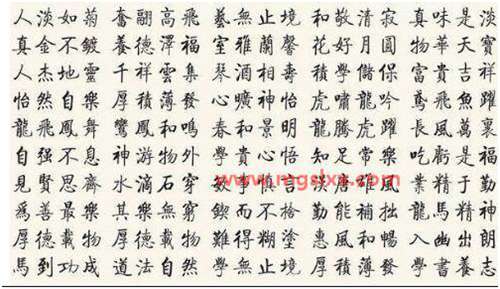 人淡如菊 奮翮高飛 藝無止境 和敬清寂 真味是淡
真金不鍍 養德澤福 室雅蘭馨 花好月圓 物華天寶
人杰地靈 千祥雲集 琴酒相壽 學儲保 富貴吉祥
怡然自樂 厚積薄發 心曠神怡 虎嘯龍吟 鳶飛魚躍
龍飛鳳舞 鸞鳳和鳴 春和景明 龍騰虎躍 長風萬裏
自强不息 神游物外 學貴心悟 知足常樂 吃虧是福
見賢思齊 水滴石穿 漢唐雄風 業精于勤
www.mgslxx.com
爲善最樂 其樂無窮 鍥而不捨 勤能補拙 龍馬精神
厚德載物 厚德載物 難得糊塗 惠風和暢 入幽出朗
馬到功成 道法自然 學無止境 厚積薄發 學書養志